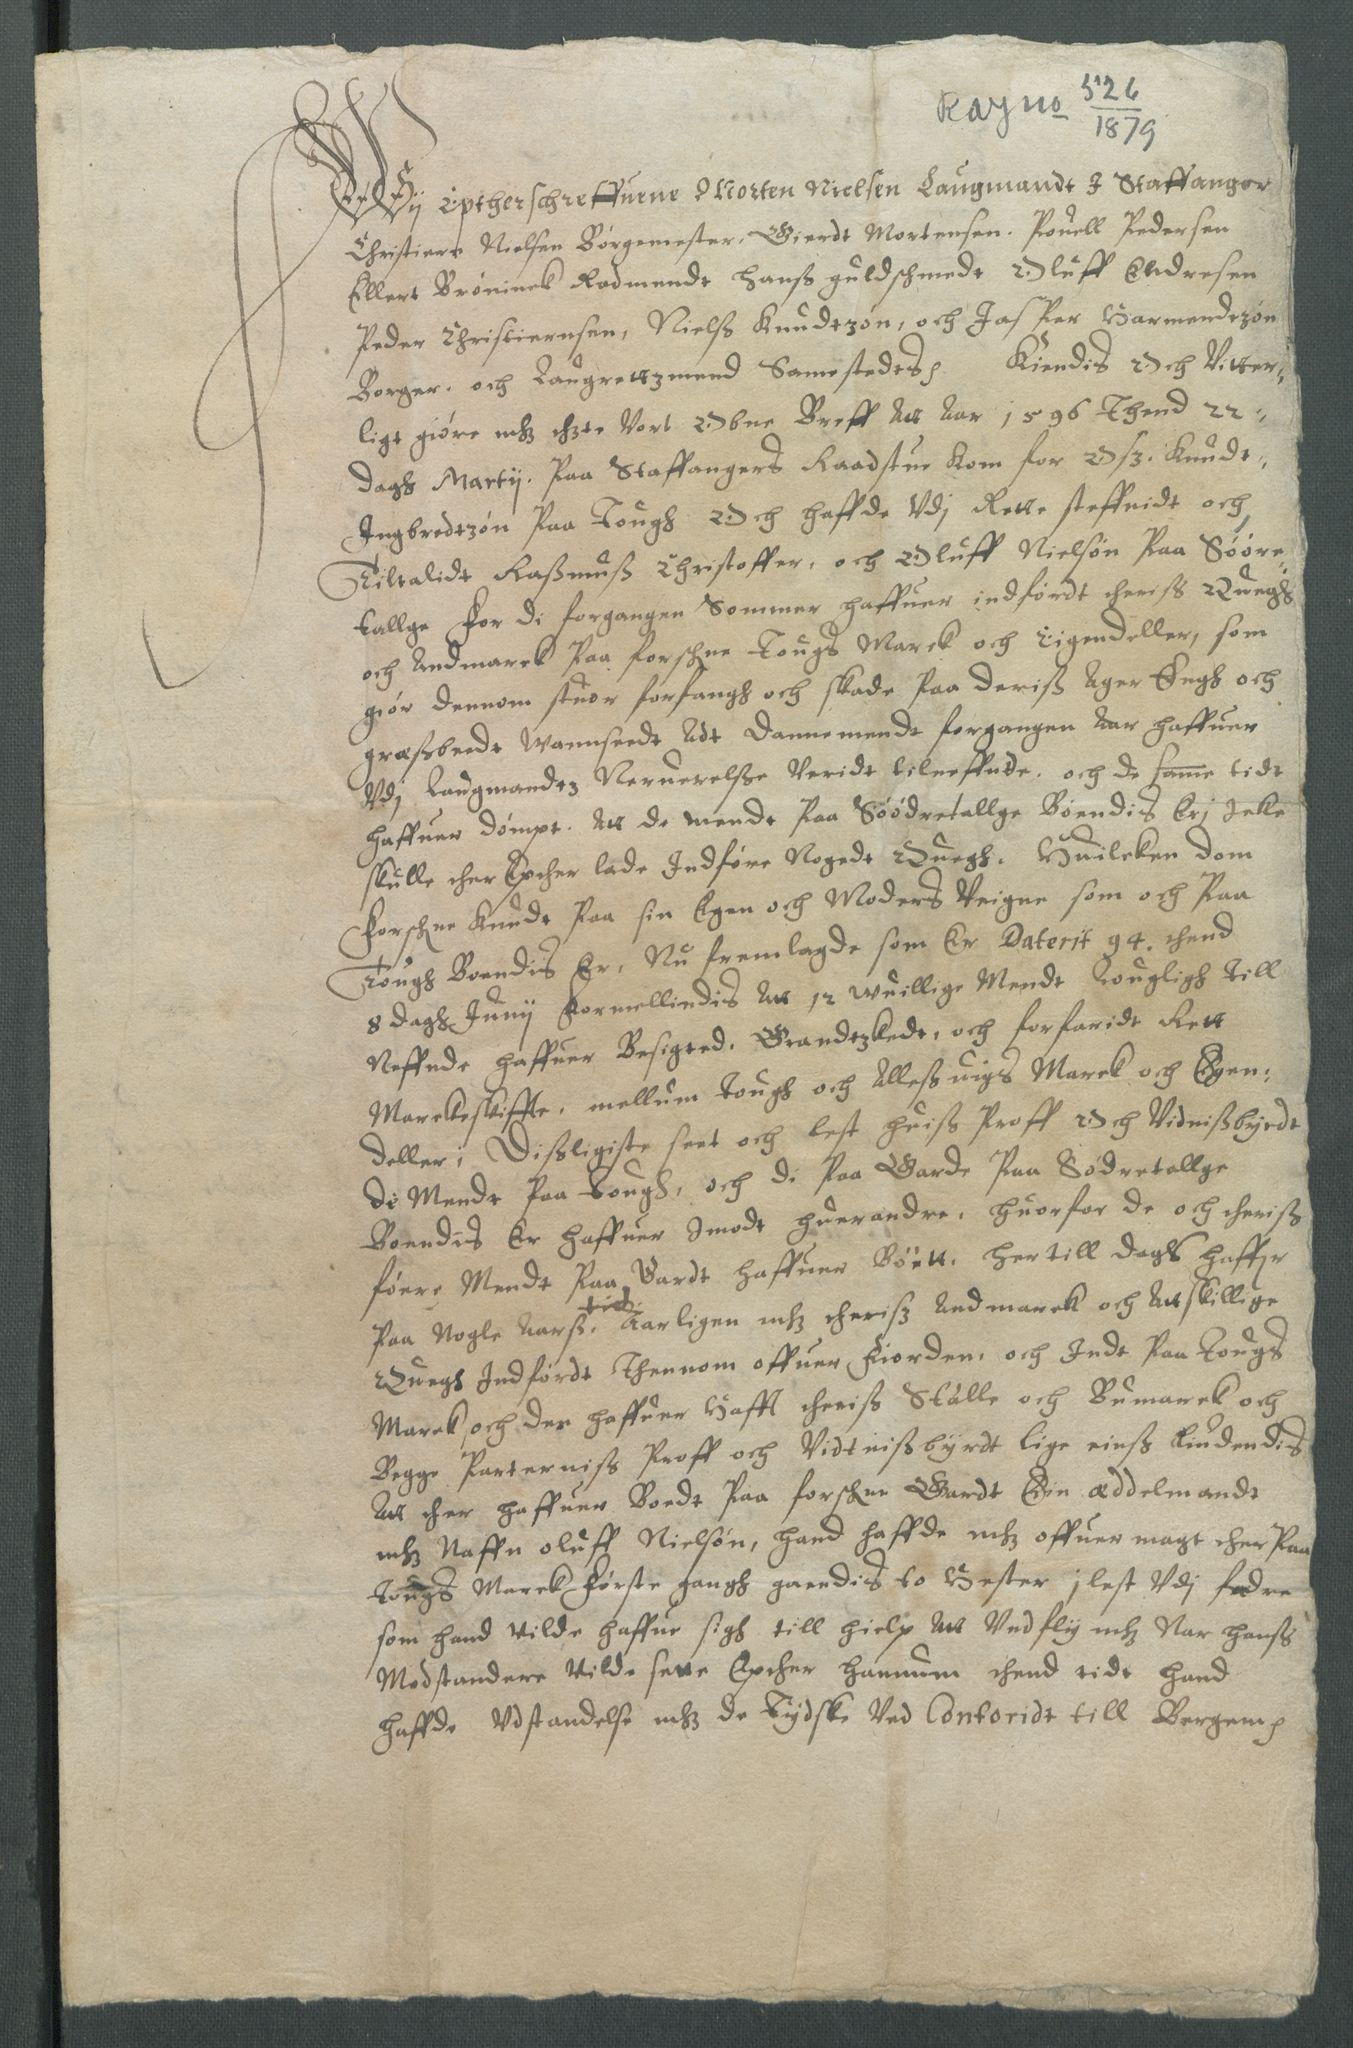 Raÿ no 526
1879
Wij Epther schreffuene Morten Nielsen Laugmandt I Staffanger
Christiern Nielsen Børgemester, Gierdt Mortensen. Pouell Pedersen
Ellert Brøninck Radmendt hanss guldschmedt Oluff Andresen
Peder Christiernsen, Nielss Knudtzøn, och Jasper Harmendtzøn
Borger. och Laugrettzmend Samestedts Kiendis Och Vitter¬
ligt giøre mz thzte Vort Obne Breff Att Aar 1596 Thend 22
dagh Martij. Paa Staffangers Raadstue kom for Osz. Knudt
Ingbredtzøn Paa Tough Och haffde Vdj Rette steffnidt och
Tiltalidt Rassmuss Christoffer, och Oluff Nielsøn Paa Søøre
tallge For di forgangen Sommer haffuer indførdt theriss Quegh
och Andmarck Paa forschne Tougs Marck och Eigendeller, som
giør dennom stuor forfangh och skade Paa deriss Ager Engh och
græssbeedt Wannseedt Adt Dannemendt forgangen Aar haffuer
Vdj Laugmandtz Neruerelsse Veridt tilneffnde. och de samme tidt
haffuer dømpt. Att de mendt Paa Søødretallge Boendis Erj Icke
skulle ther Epther lade Indføre Nogedt Quegh. Huilcken dom
Forschne Knudt Paa sin Egen och Moders Veigne som och Paa
Tough Boendis Er, Nu fremlagde som Er Daterit 94. thend
8 dagh Junij Formellindis Att 12 wuillige Mendt Lougligh till
Neffnde haffuer Besigted. Grandtzkedt, och forfaridt Rett
Marckeskiffte, mellum Tough och Allessuigs Marck och Egen¬
deller; Dissligiste seet och lest huiss Proff Och Vidnissbyrdt
di Mendt Paa Tough, och di Paa Garde Paa Sødretallge
Boendis Er haffuer Imodt huerandre. huorfor de och theriss
føere Mendt Paa Gardt haffuer Boett. her till dags haffr
Paa Nogle Aars. tid Aarligen mz theriss Andmarck och Attskillige
Quegh Indførdt Thennom offuer Fiorden. och Indt Paa Tougs
Marck och der haffuer Hafft theriss Stålle och Bumarck och
Begge Parterniss Proff och Vidtnissbyrdt lige einss Liudendis
Att ther haffuer Boedt Paa forschne Gardt Ein æddelmandt
mz Naffn oluff Nielsøn, hand haffde mz offuer magt ther Paa
Tougs Marck Første gangh gaendis to Hester ilest Vdj fodre
som hand Vilde haffue sigh till hielp Att Vndfly mz Nar hanss
Modstandere Vilde sette Epther hannum thend tidt hand
haffde Vdstandelse mz de Tydske Ved Contoridt till Bergenn